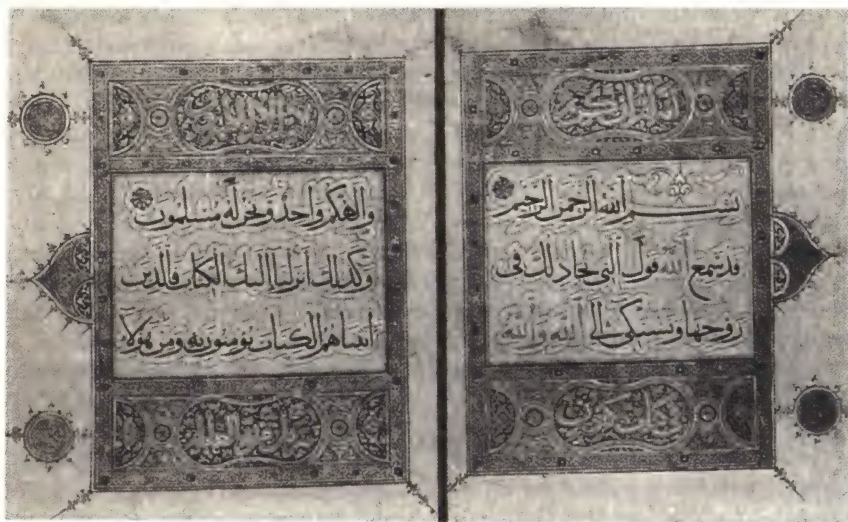 انه لقران كريم
بسم الله الرحمن الرحيم
قد سمع الله قول التي تجادلك في
زوجها وتشتكي الى الله والله
في كتاب مكنون
والهكم واحد ونحن له مسلمون
وكذلك انزلنا اليك الكتاب فالذين
اتيناهم الكتاب يؤمنون به ومن هولاء